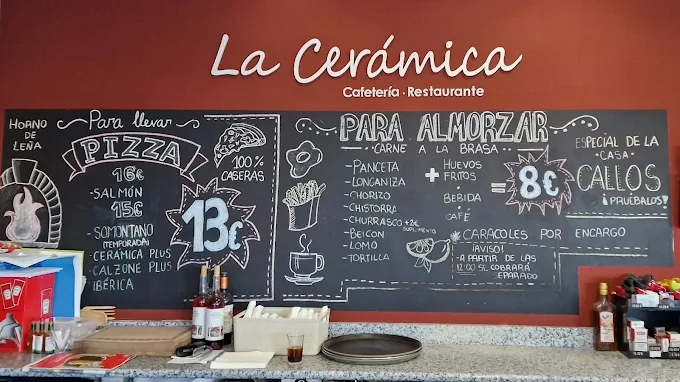 La Cerámica
Cafetería · Restaurante
HORNO
DE
LEÑA
Para llevar
PIZZA
16€
-SALMÓN
15€
-SOMONTANO
(TEMPORADA)
CERÁMICA PLUS
-CALZONE PLUS
IBÉRICA
13€
100%
CASERAS
PARA ALMORZAR
CARNE A LA BRASA
-PANCETA
-LONGANIZA
-CHORIZO
-CHISTORRA
-CHURRASCO +2€
SUPLEMENTO
-BEICON
-LOMO
-TORTILLA
+
HUEVOS
FRITOS
-
BEBIDA
-
CAFÉ
=
8€
CARACOLES POR ENCARGO
¡AVISO!
A PARTIR DE LAS
12:00 SE COBRARÁ
SEPARADO
ESPECIAL DE LA
·CASA·
CALLOS
¡PRUÉBALOS!